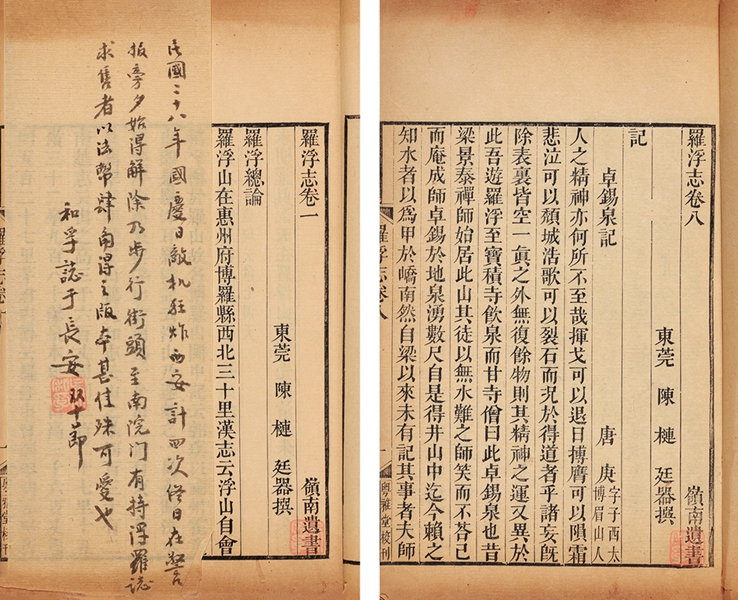 羅浮志卷一 嶺南遺書
東莞 陳 槤 廷器撰
羅浮總論
羅浮山在惠州府博羅縣西北三十里漢志云浮山自會
民國二十八年國慶日敵机狂炸西安計四次終日在警
报旁夕始得解除乃步行街頭至南院门有持浮羅誌
求售者以法幣肆角得之版本甚佳殊可愛也
和孚誌于長安 双十節
羅浮志卷八 嶺南遺書
東莞 陳 槤 廷器撰
記
卓錫泉記 唐 庚 字子西太
博眉山人
人之精神亦何所不至哉揮戈可以退日搏膺可以隕霜
悲泣可以頹城浩歌可以裂石而况於得道者乎諸妄旣
除表裏皆空一眞之外無復餘物則其精神之運又異於
此吾遊羅浮至寶積寺飲泉而甘寺僧曰此卓錫泉也昔
梁景泰禪師始居此山其徒以無水難之師笑而不荅已
而庵成師卓錫於地泉湧數尺自是得井山中迄今賴之
知水者以爲甲於嶠南然自梁以來未有記其事者夫師
羅浮志卷八
粵雅堂校刊